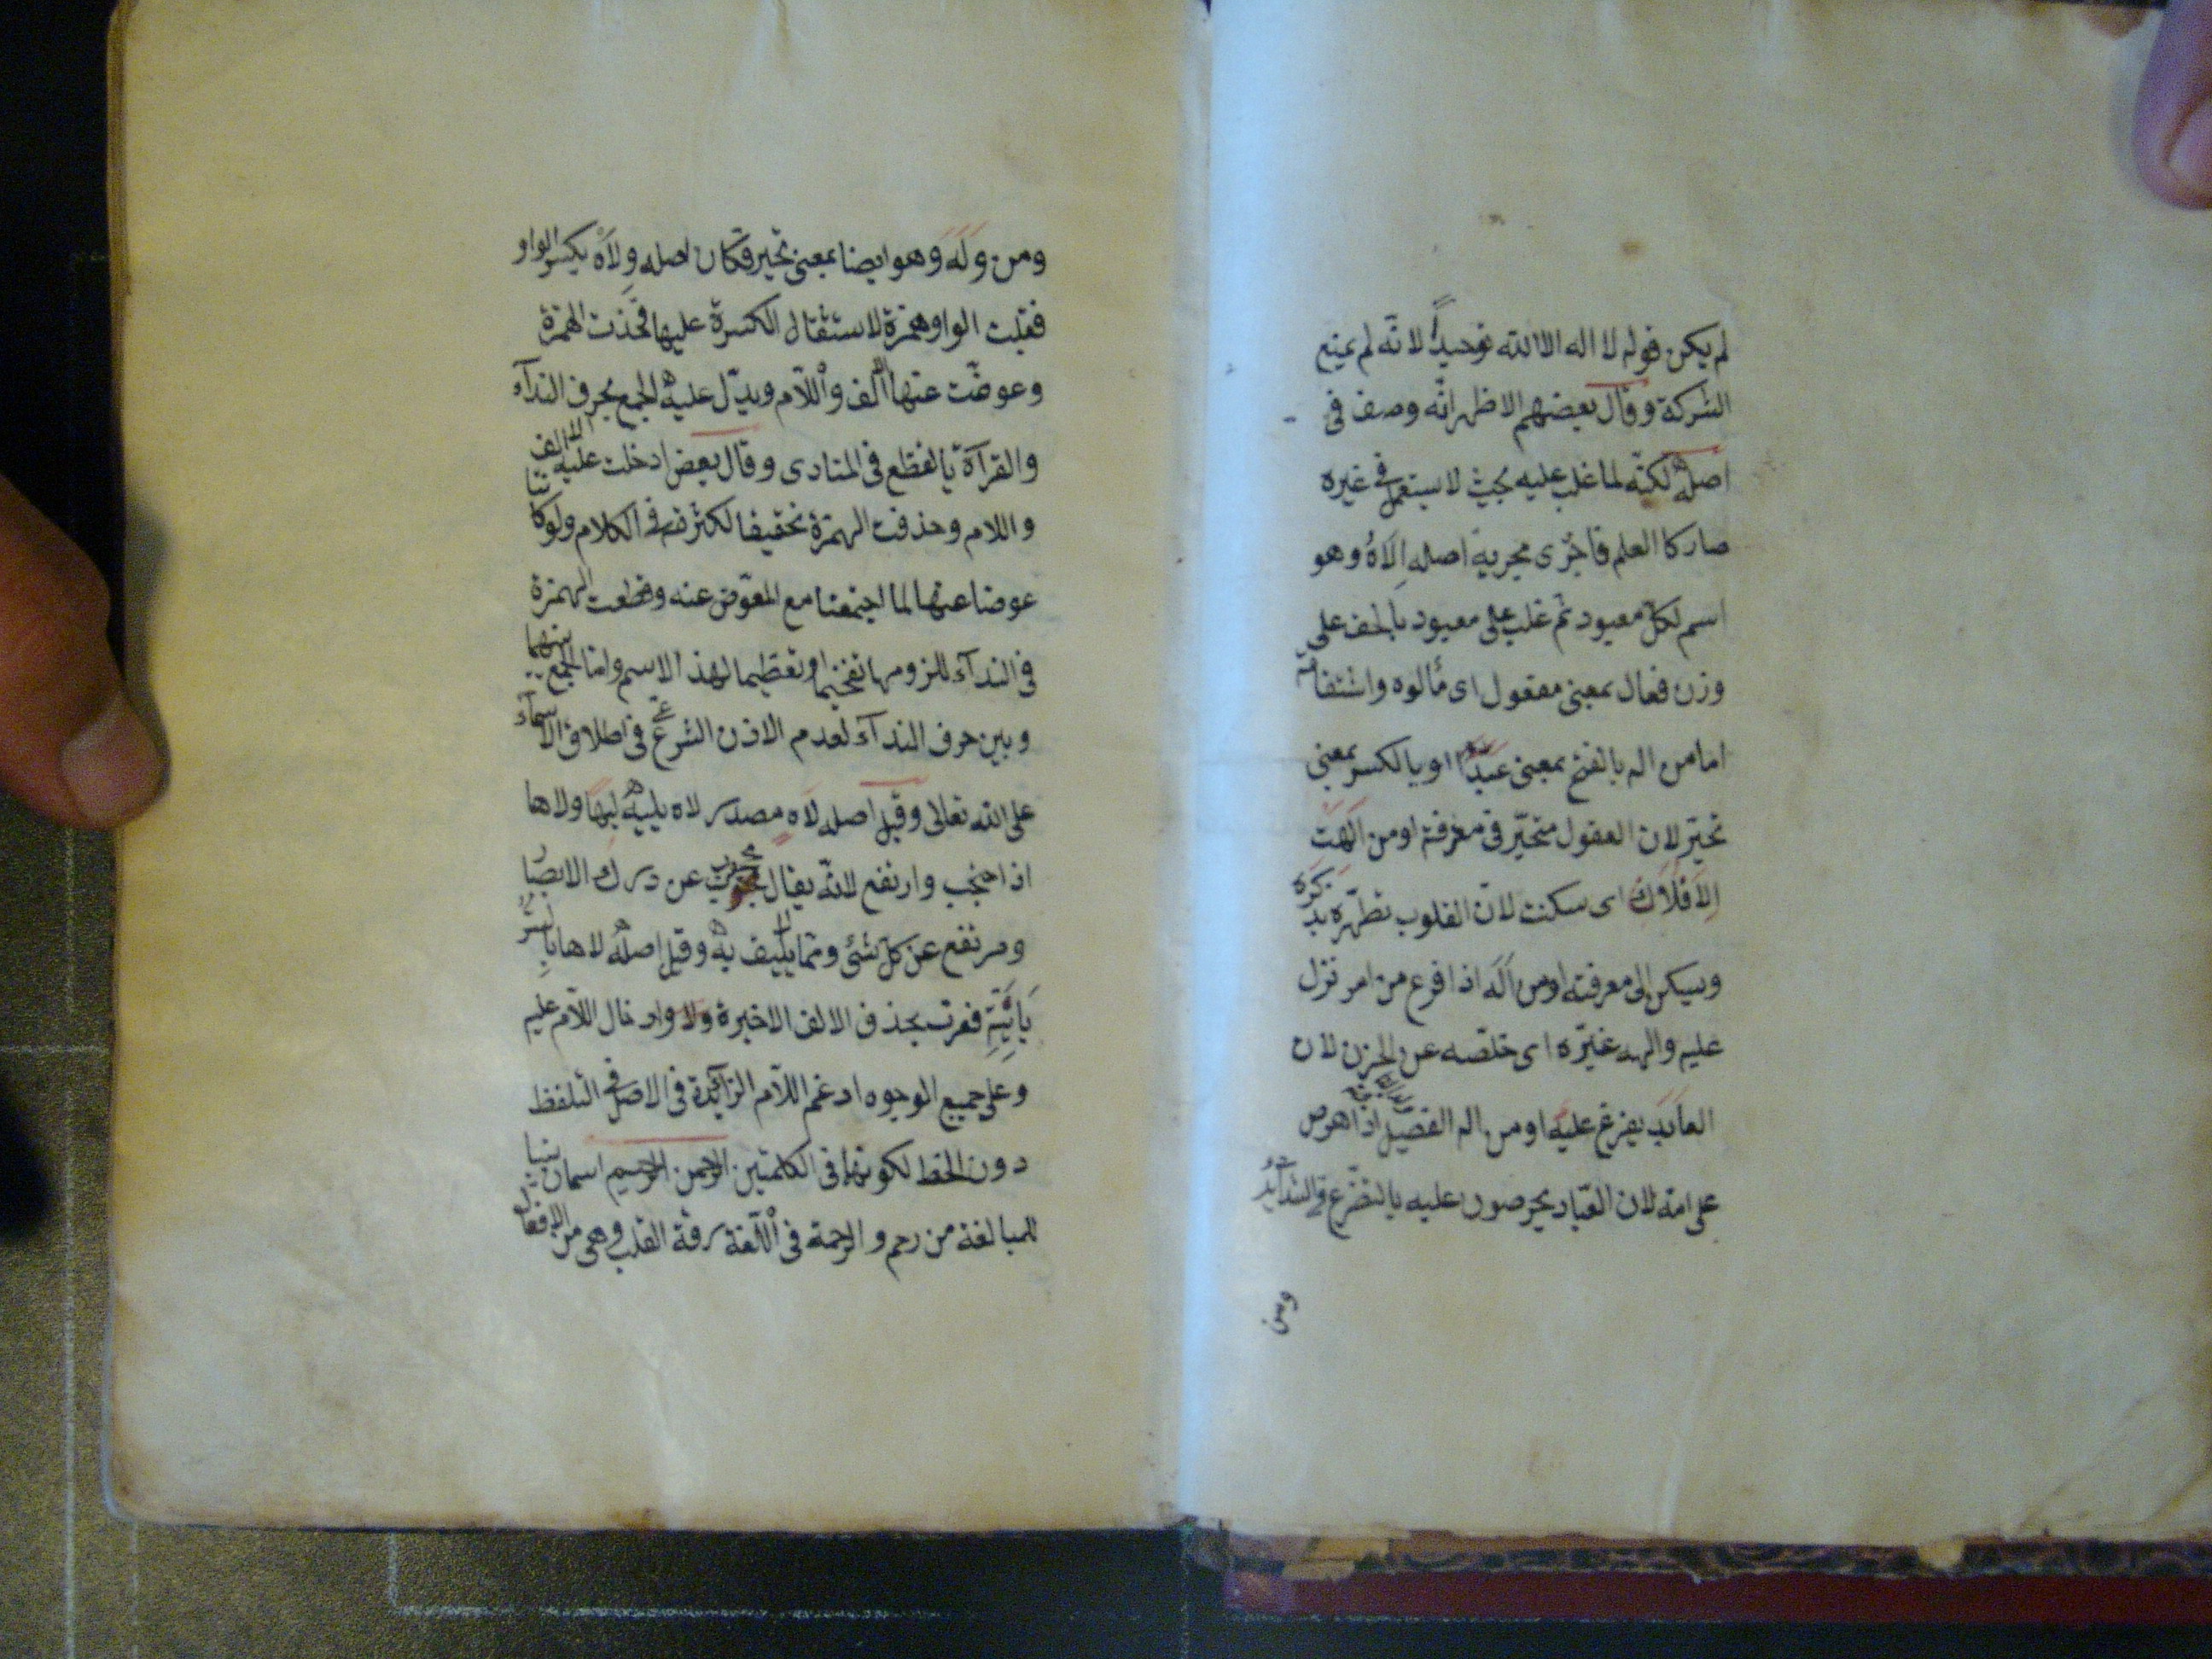 لم يكن قوله لا اله الا الله توحيدا لانه لم يمنع
الشركة وقال بعضهم الاظهر انه وصف فى
اصله لكنه لما غلب عليه بحيث لا يستعمل فى غيره
صار كا العلم فاجرى مجريه اصله الاه وهو
اسم لكل معبود ثم غلب على معبود بالحق على
وزن فعال بمعنى مفعول اى مألوه واشتقاقه
اما من اله بالفتح بمعنى عبد او بالكسر بمعنى
تحير لان العقول متحير فى معرفته او من الهت
الافلاك اى سكنت لان القلوب تطهره بذكره
ويسكن الى معرفته او من اله اذا فزع من امر نزل
عليه والهه غيره اى خلصه عن الحزن لان
العابد يفزغ عليه او من اله الفصيل اذا هرص
على امه لان العباد يحرصون عليه بالتضرع فى الشدائد
ومن
ومن وله وهو ايضا بمعنى تحير فكان اصله ولاه بكسر الواو
فقلبت الواو همزة لاستثقال الكسرة عليها فحذت الهمزة
وعوضت عنها الالف واللام ويدل عليه الجمع بحرف الندآء
والقرآة بالقطع فى المنادى وقال بعض ادخلت عليه الالف
واللام وحذفت الهمزة تخفيفا لكثرته فى الكلام ولو كانتا
عوضا عنها لما اجتمعتا مع المعوض عنه وقطعت الهمزة
فى الندآء للزومها تفخيما وتعظيما لهذ الاسم واما الجمع بينهما
وبين حرف الندآء لعدم الاذن الشرع فى اطلاق الاسمآء
على الله تعالى وقيل اصله لاه مصدر لاه يليه ليها ولاها
اذا احتجب وارتفع لانه يقال محجوب عن درك الابصار
ومرتفع عن كل شئ ومما يليق به وقيل اصله لاها بالسر
يانية فعرب بحذف الالف الاخيرة وادخال اللام عليه
وعلى جميع الوجوه ادغم اللام الزائدة فى الاصل فى التلفظ
دون الخط لكونها فى الكلمتين الرحمن الرحيم اسمان بنيا
للمبالغة من رحم والرحمة فى اللغة رقة القلب وهى من الافعال